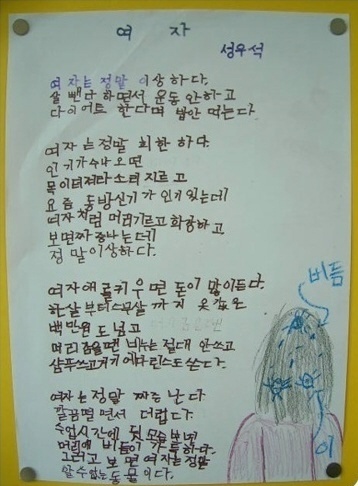 여 자
성우석
여자는 정말 이상하다.
살 뺀다 하면서 운동 안하고
다이어트 한다며 밥안 먹는다.
여자는정말 희한 하다.
인기가수나 오면
목이터져라소리 지르고
요즘 동방신기가 인기 있는데
여자처럼 머리기르고 화장하고
보면짜증나는데
정말이상하다.
여자애 를키우면 돈이 많이든다.
한살부터스무살까지 옷값은
백만원 도넘고
머리 감을땐 비누는 절대 안쓰고
샴푸쓰고거기에다린스도쓴다.
여자는정말 짜증 난다
깔끔떨면서 더럽다.
수업시간에 뒷모습보면
머리에 비듬이 가득하다.
그러고 보면 여자는정말
알수없는동물이다.
비듬
이